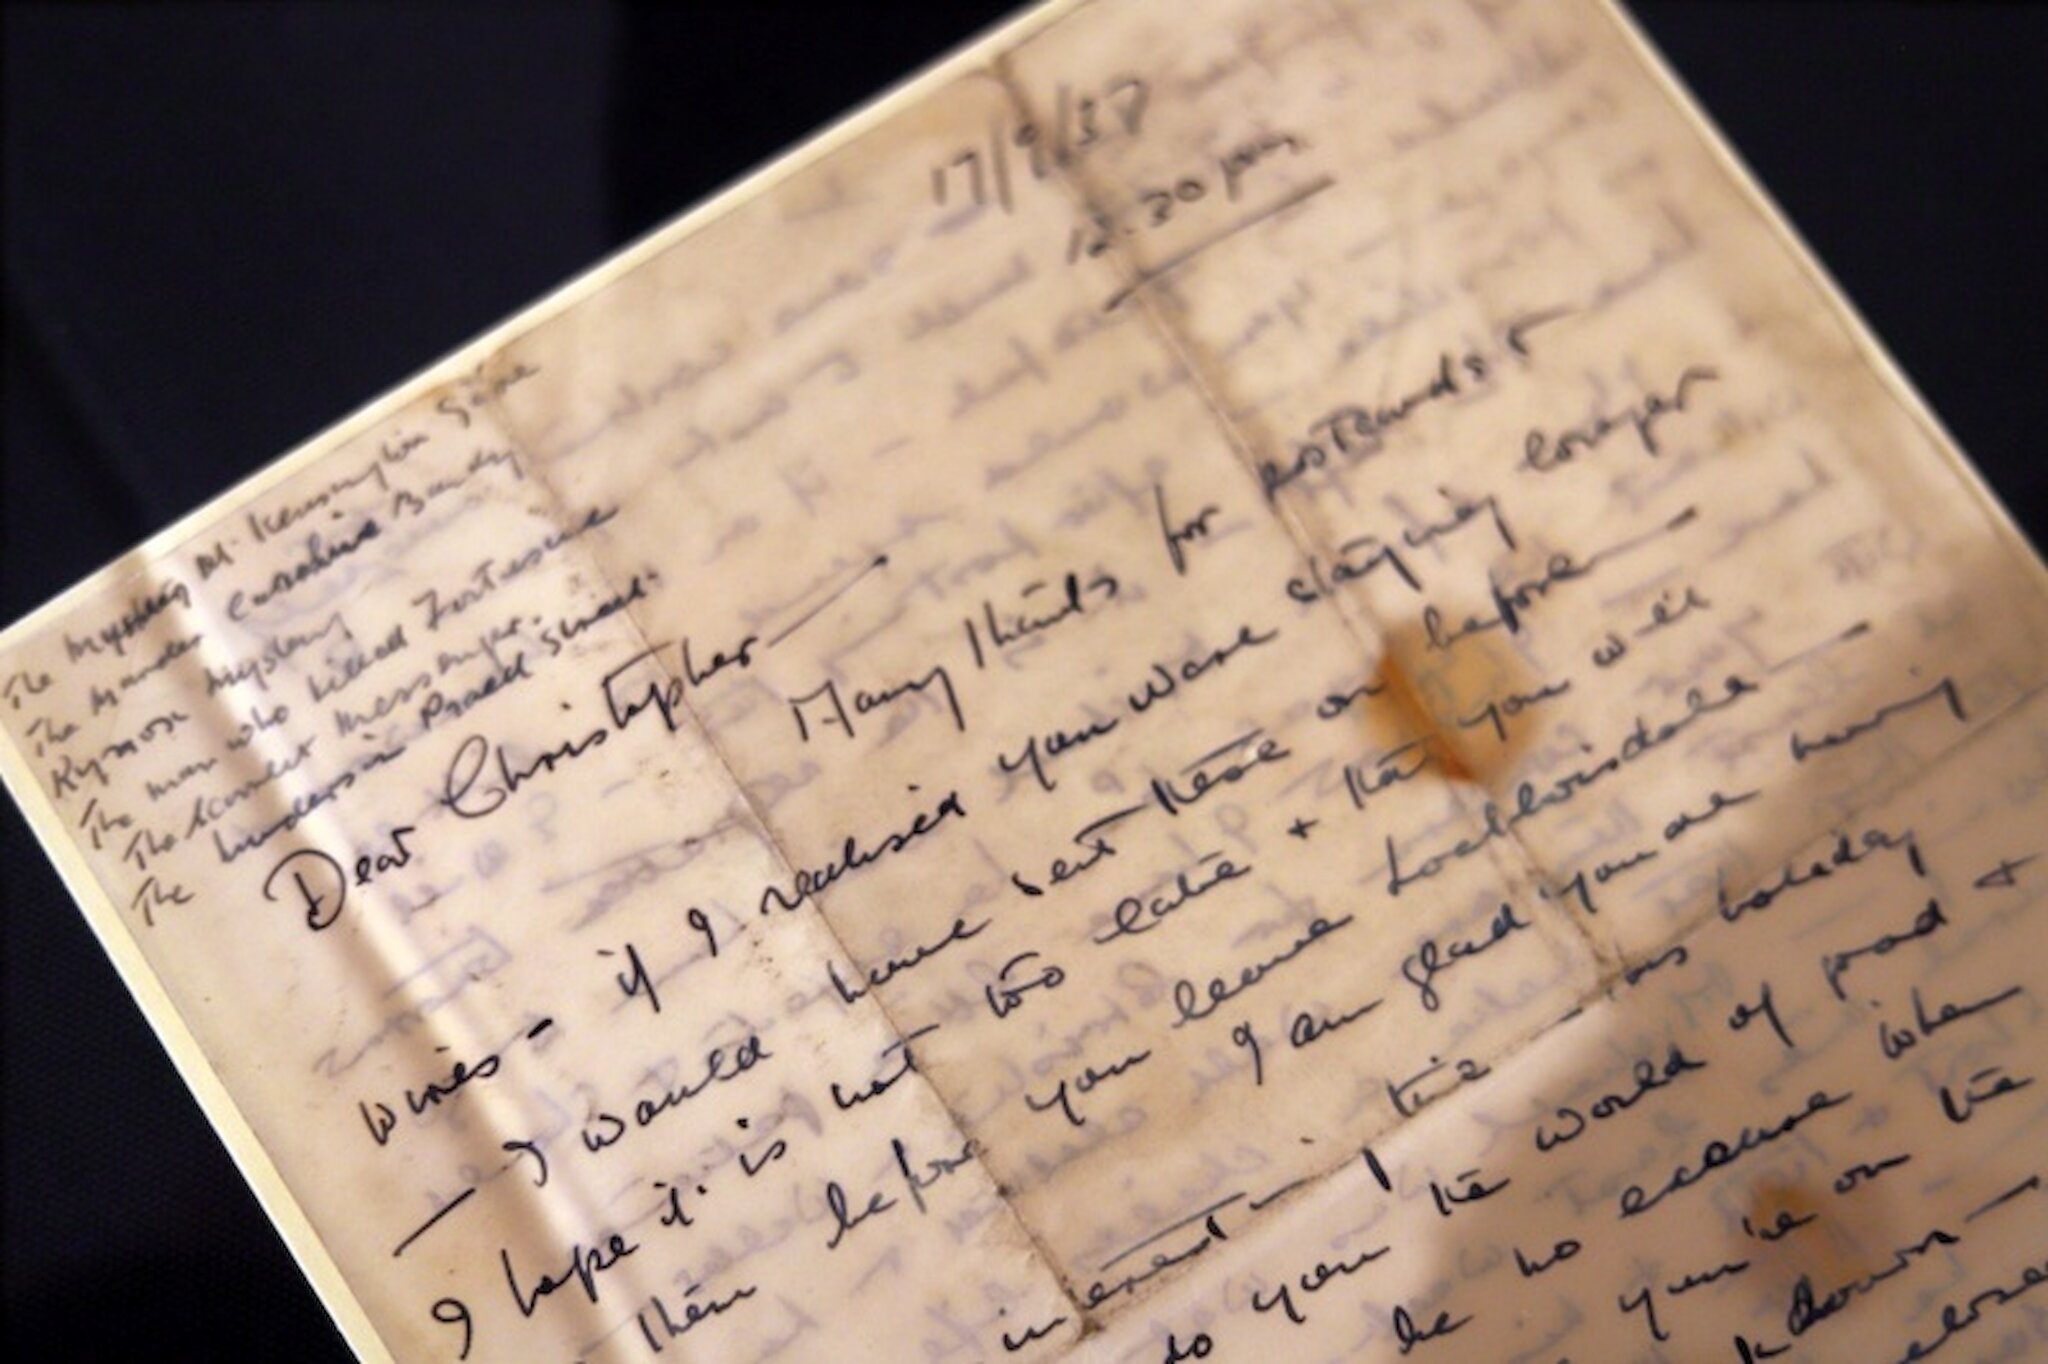 17/9/37
12.20 pm
The Mystery M. Kensington Gore
The Murder Caroline Bundy
Kynson Mystery
The man who killed Fortescue
The Scarlet Messenger.
The Murders in Praed Street.
Dear Christopher —
Many thanks for postcards +
wires - if I realised you were staying longer
— I would have sent these on before —
I hope it is not too late + that you will
them before you leave Lochboisdale —
I am glad you are having
interest in this holiday
do you the world of good +
be no excuse when
you're on the
down —